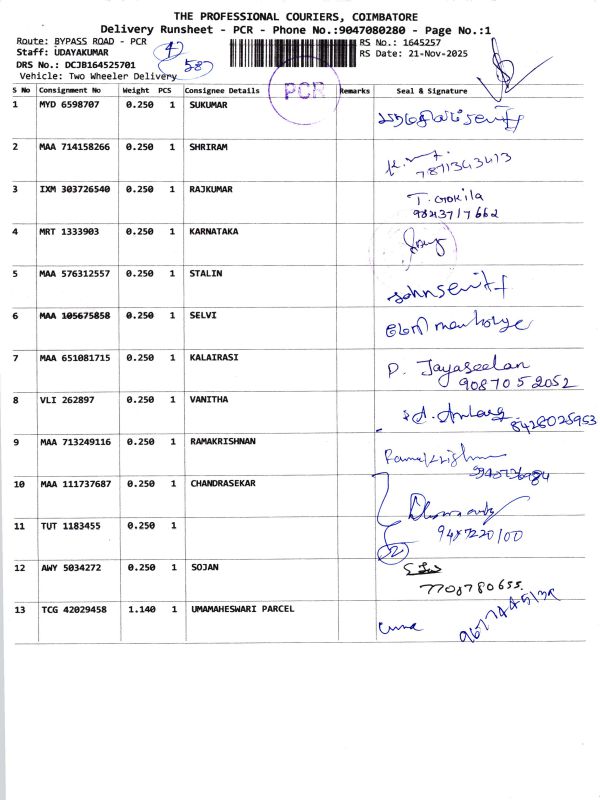 THE PROFESSIONAL COURIERS, COIMBATORE
Delivery Runsheet - PCR - Phone No.:9047080280 - Page No.:1
Route: BYPASS ROAD - PCR
Staff: UDAYAKUMAR
DRS No.: DCJB164525701
Vehicle: Two Wheeler Delivery
4
58
RS No.: 1645257
RS Date: 21-Nov-2025
PCR
S No Consignment No Weight PCS Consignee Details Remarks Seal & Signature
1 MYD 6598707 0.250 1 SUKUMAR
2 MAA 714158266 0.250 1 SHRIRAM
7871343413
3 IXM 303726540 0.250 1 RAJKUMAR T. Gokila
9843717662
4 MRT 1333903 0.250 1 KARNATAKA
5 MAA 576312557 0.250 1 STALIN
6 MAA 105675858 0.250 1 SELVI
7 MAA 651081715 0.250 1 KALAIRASI P. Jayaseelan
9087052052
8 VLI 262897 0.250 1 VANITHA
8428025953
9 MAA 713249116 0.250 1 RAMAKRISHNAN Ramakrishnan
10 MAA 111737687 0.250 1 CHANDRASEKAR
11 TUT 1183455 0.250 1
9487220100
12 AWY 5034272 0.250 1 SOJAN
7708780655
13 TCG 42029458 1.140 1 UMAMAHESWARI PARCEL Uma